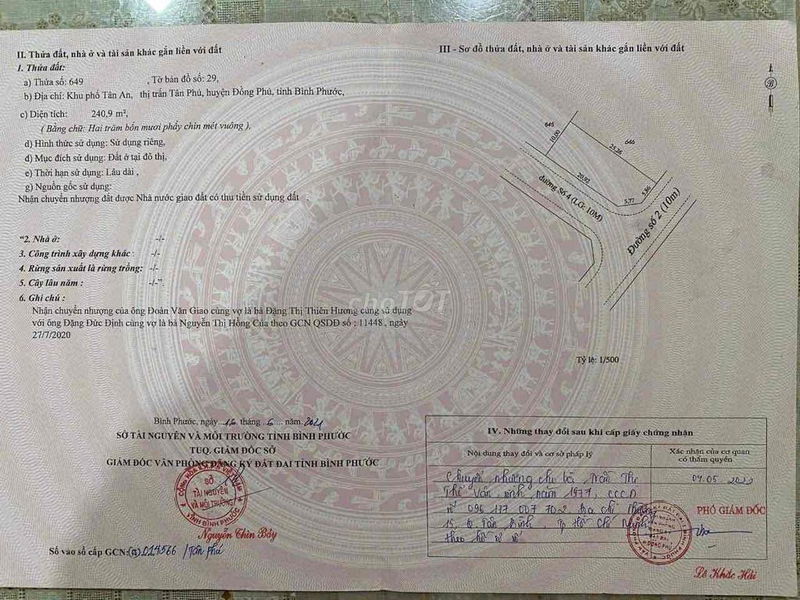 II. Thửa đất, nhà ở và tài sản khác gắn liền với đất
1. Thửa đất:
a) Thửa số: 649 , Tờ bản đồ số: 29,
b) Địa chỉ: Khu phố Tân An, thị trấn Tân Phú, huyện Đồng Phú, tỉnh Bình Phước,
c) Diện tích: 240,9 m²,
( Bằng chữ: Hai trăm bốn mươi phẩy chín mét vuông.)
d) Hình thức sử dụng: Sử dụng riêng,
đ) Mục đích sử dụng: Đất ở tại đô thị,
e) Thời hạn sử dụng: Lâu dài ,
g) Nguồn gốc sử dụng:
Nhận chuyển nhượng đất được Nhà nước giao đất có thu tiền sử dụng đất .
"2. Nhà ở: -/-
3. Công trình xây dựng khác : -/-
4. Rừng sản xuất là rừng trồng: -/-
5. Cây lâu năm : -/-"
6. Ghi chú :
Nhận chuyển nhượng của ông Đoàn Văn Giao cùng vợ là bà Đặng Thị Thiên Hương cùng sử dụng
với ông Đặng Đức Định cùng vợ là bà Nguyễn Thị Hồng Của theo GCN QSDĐ số : 11448 , ngày
27/7/2020
Bình Phước, ngày 16 tháng 6 năm 2021
SỞ TÀI NGUYÊN VÀ MÔI TRƯỜNG TỈNH BÌNH PHƯỚC
TUQ. GIÁM ĐỐC SỞ
GIÁM ĐỐC VĂN PHÒNG ĐĂNG KÝ ĐẤT ĐAI TỈNH BÌNH PHƯỚC
SỞ
TÀI NGUYÊN
VÀ MÔI TRƯỜNG
TỈNH BÌNH PHƯỚC
Nguyễn Thìn Bảy
Số vào sổ cấp GCN: /Tân Phú
III - Sơ đồ thửa đất, nhà ở và tài sản khác gắn liền với đất
646
10,00
25,26
646
20,92
5,77
5,86
đường Số 4 (LG: 10M)
Đường số 2 (10m)
choTỐT
Tỷ lệ: 1/500
IV. Những thay đổi sau khi cấp giấy chứng nhận
Nội dung thay đổi và cơ sở pháp lý
Xác nhận của cơ quan
có thẩm quyền
Chuyển nhượng cho bà Trần Thị
sinh năm 1977, CCCD
số 096 117 007 702 Địa chỉ: Phường
15, Q. Tân Bình, Tp Hồ Chí Minh
theo hồ sơ số
PHÓ GIÁM ĐỐC
Lê Khắc Hải